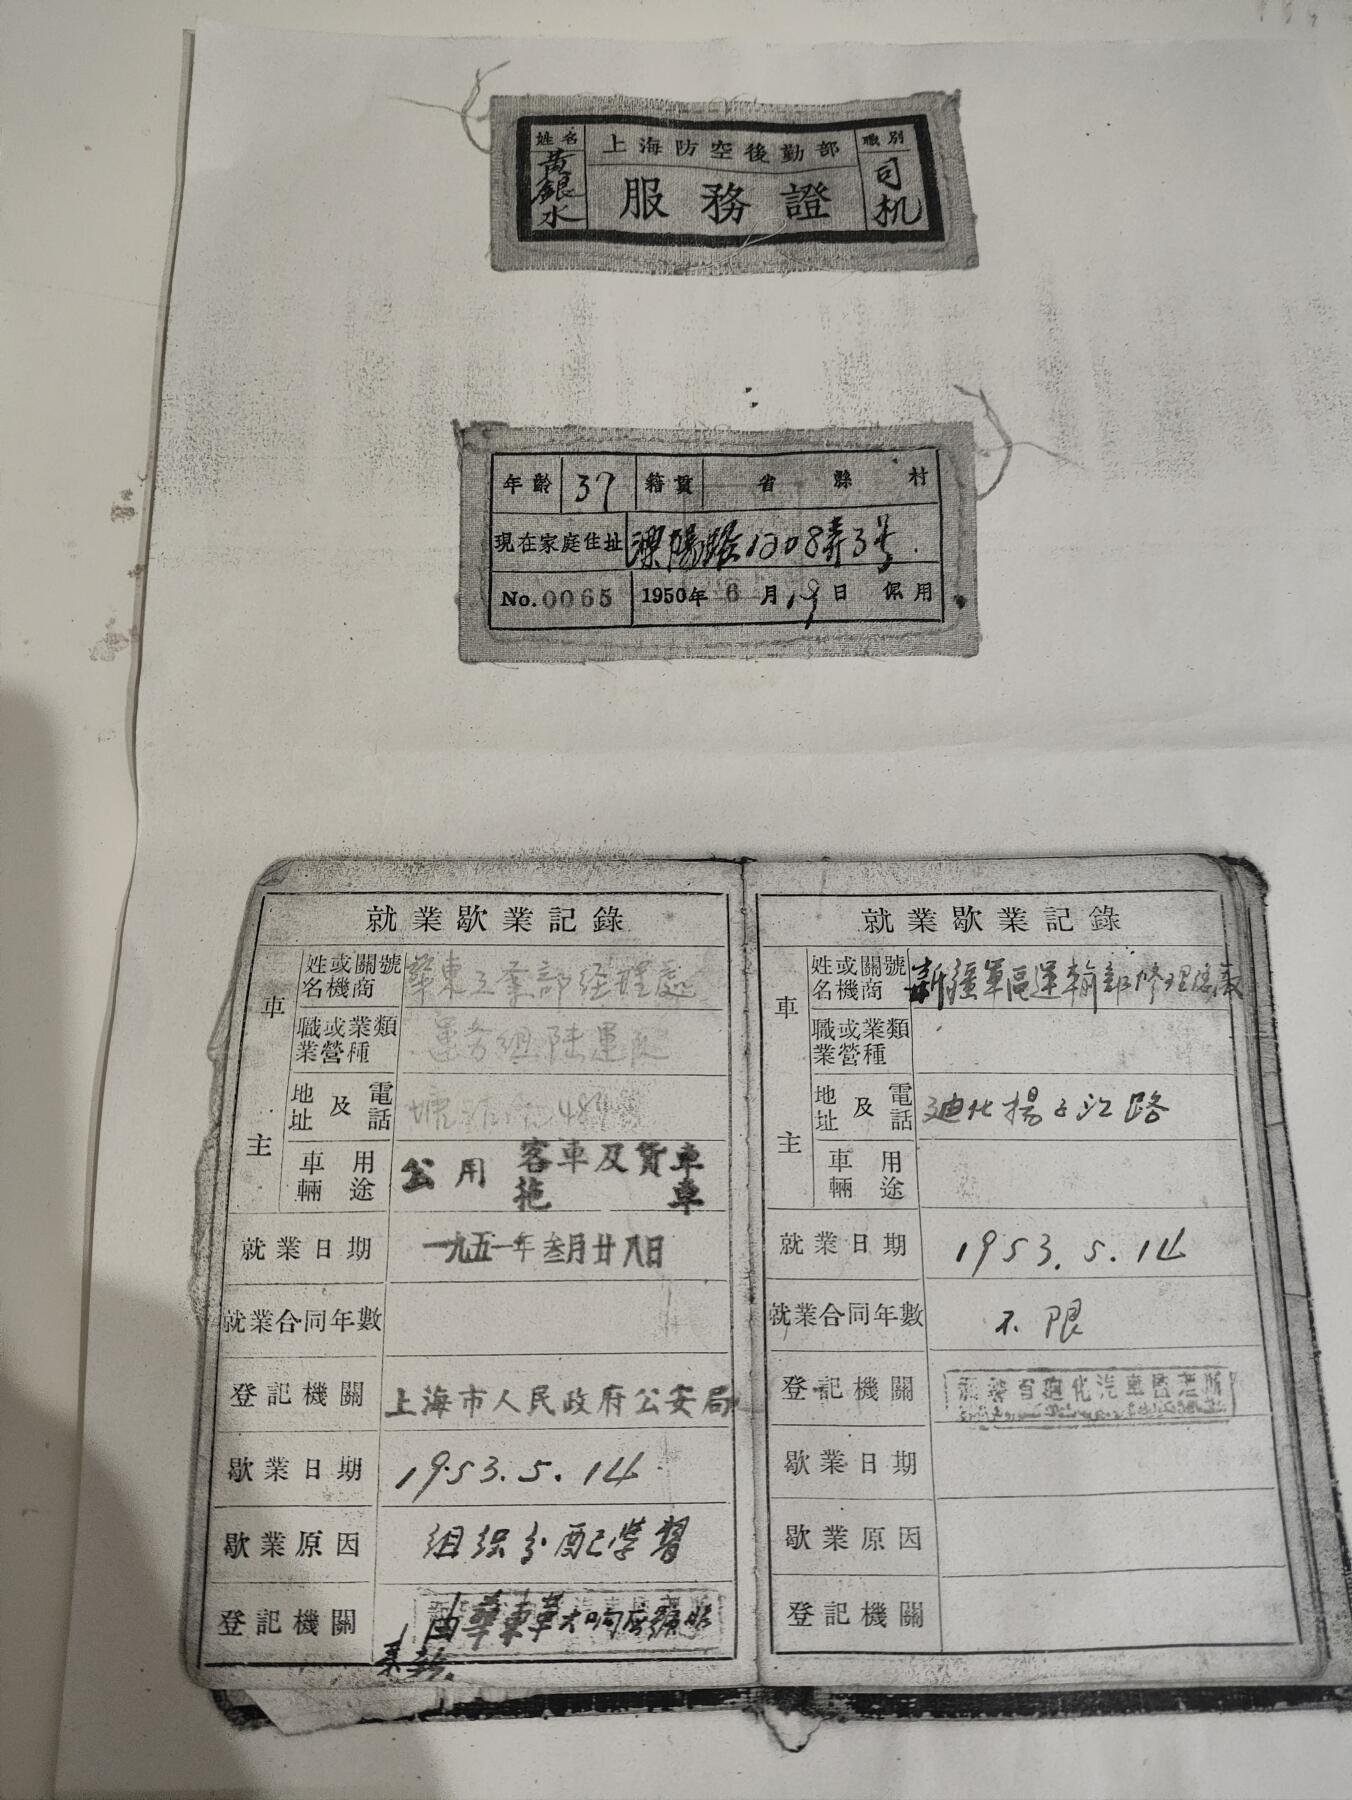 姓名 上海防空後勤部 職別
黃銀水 服務證 司机
年齡 37 籍貫 省 縣 村
現在家庭住址 溧陽路1208弄3号
No.0065 1950年6月19日 佩用
就業歇業記錄
車主
姓名或機關商號 華東工業部經理處
職業或營業種類 運务組陸運
地址及電話
車輛用途 公用 客車及貨車 拖車
就業日期 一九五一年叁月廿八日
就業合同年數
登記機關 上海市人民政府公安局
歇業日期 1953.5.14
歇業原因 組织分配学習
登記機關 由華東革大
來新.
就業歇業記錄
車主
姓名或機關商號 新疆軍區運輸部修理總廠
職業或營業種類
地址及電話 迪化揚子江路
車輛用途
就業日期 1953.5.14
就業合同年數 不限
登記機關 新疆省迪化汽車監理所
歇業日期
歇業原因
登記機關